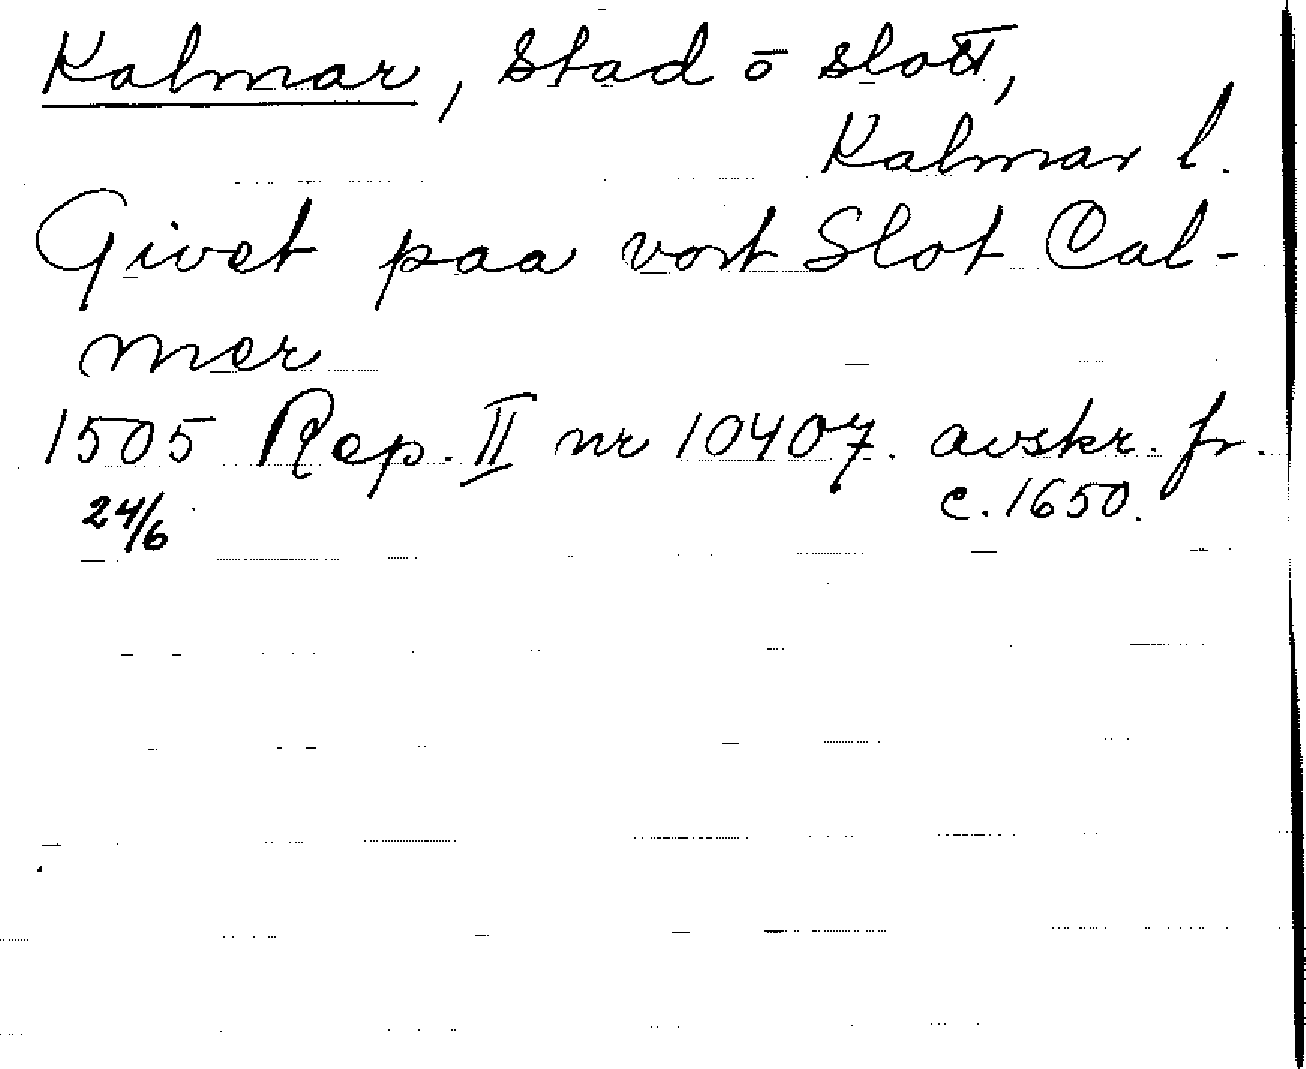 Kalmar, Stad ō slott,
Kalmar l.
Givet paa vort Slot Cal-
mer
1505 Rep. II nr 10407. avskr. fr.
24/6 c. 1650.